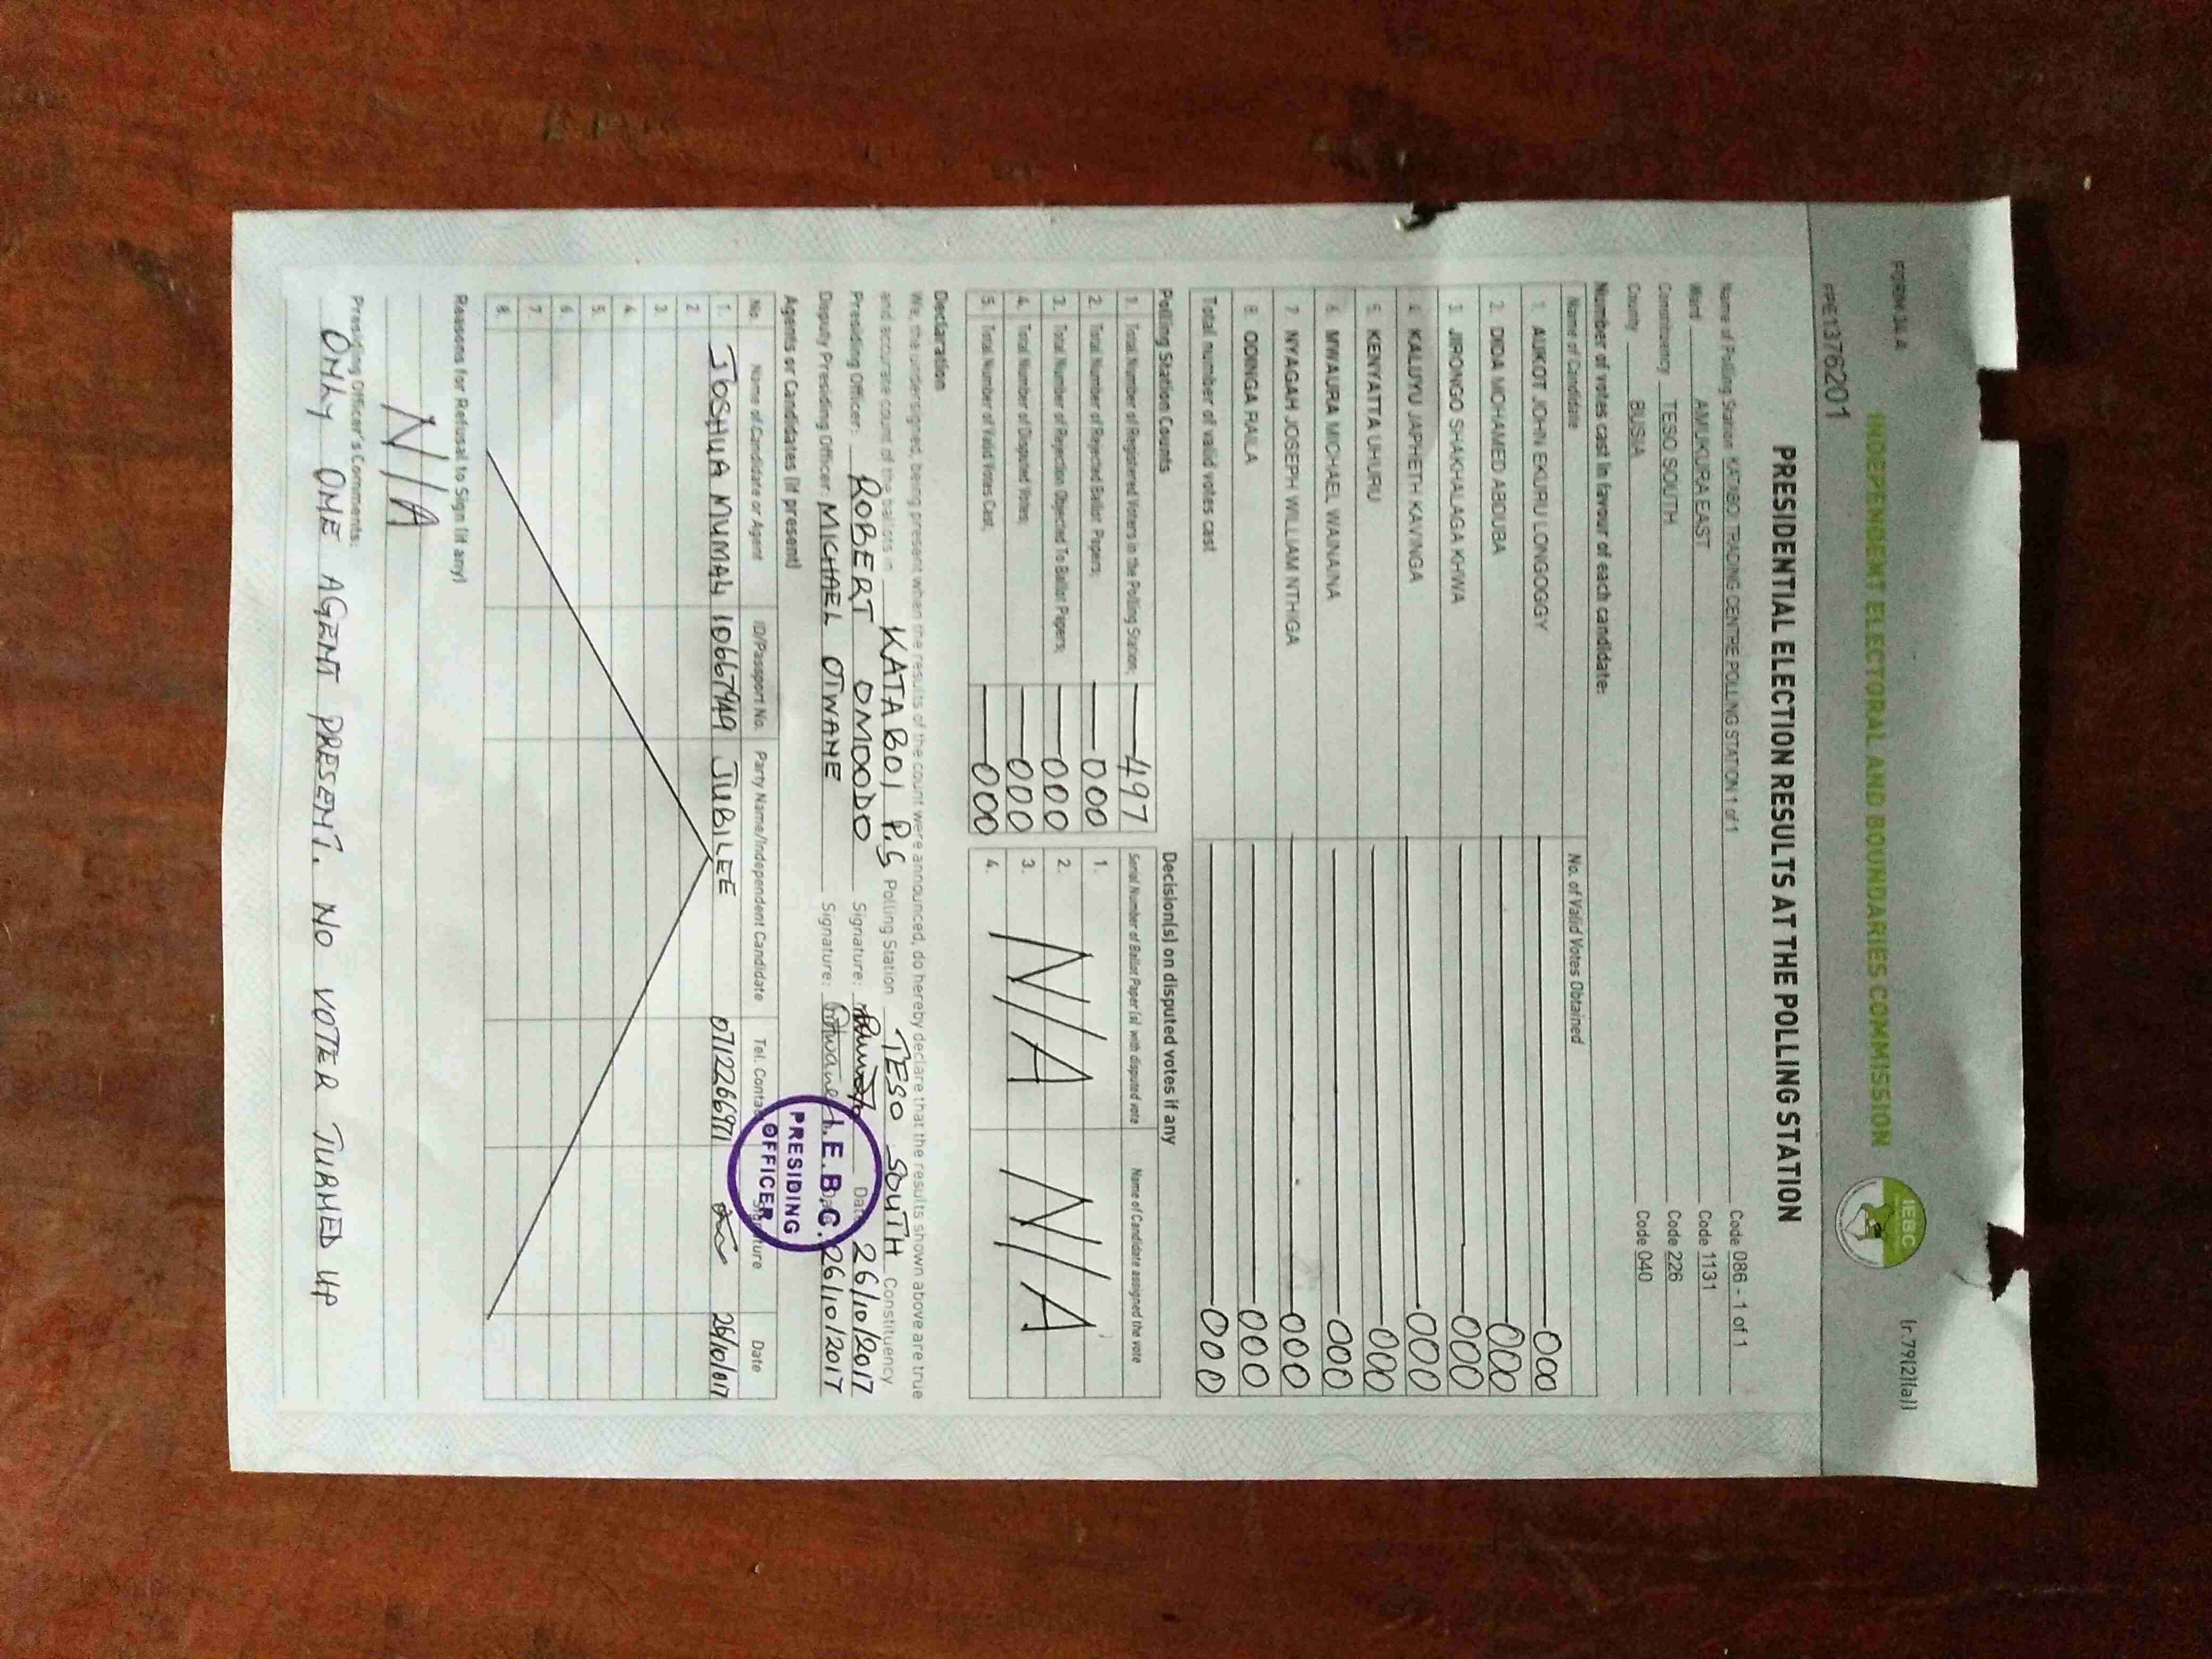 FORM 34 A
(r.79(2)(a))
INDEPENDENT ELECTORAL AND BOUNDARIES COMMISSION
IEBC
PRE1376201
PRESIDENTIAL ELECTION RESULTS AT THE POLLING STATION
Name of Polling Station TRADING CENTRE POLLING STATION 1 of 1 Code 086 - 1 of 1
Ward AMUKURA EAST Code 1131
Constituency TESO SOUTH Code 226
County BUSIA Code 040
Number of votes cast in favour of each candidate:
Name of Candidate No. of Valid Votes Obtained
1. AUKOT JOHN EKURU LONGOGGY 000
2. DIDA MOHAMED ABDUBA 000
3. JIRONGO SHAKHALAGA KHWA 000
4. KALUYU JAPHETH KAVINGA 000
5. KENYATTA UHURU 000
6. MWAURA MICHAEL WAINAINA 000
7. NYAGAH JOSEPH WILLIAM NTHIGA 000
8. ODINGA RAILA 000
Total number of valid votes cast 000
Polling Station Counts
1. Total Number of Registered Voters in the Polling Station; 497
2. Total Number of Rejected Ballot Papers; 000
3. Total Number of Rejection Objected To Ballot Papers; 000
4. Total Number of Disputed Votes; 000
5. Total Number of Valid Votes Cast; 000
Decision(s) on disputed votes if any
Serial Number of Ballot Paper (s) with disputed vote Name of Candidate assigned the vote
1.
2.
3.
4.
N/A N/A
Declaration
We, the undersigned, being present when the results of the count were announced, do hereby declare that the results shown above are true
and accurate count of the ballots in KATABOI P.S Polling Station TESO SOUTH Constituency
Presiding Officer: ROBERT OMOODO Signature: Date 26/10/2017
Deputy Presiding Officer: MICHAEL OTWANE Signature: Otwane 26/10/2017
I.E.B.C.
PRESIDING
OFFICER
Agents or Candidates (if present)
No. Name of Candidate or Agent ID/Passport No. Party Name/Independent Candidate Tel. Contact Signature Date
1. JOSHUA 10667949 JUBILEE
2
3
4
5
6
7
8.
Reasons for Refusal to Sign (if any)
N/A
Presiding Officer's Comments:
ONLY ONE AGENT PRESENT. NO VOTER TURNED UP